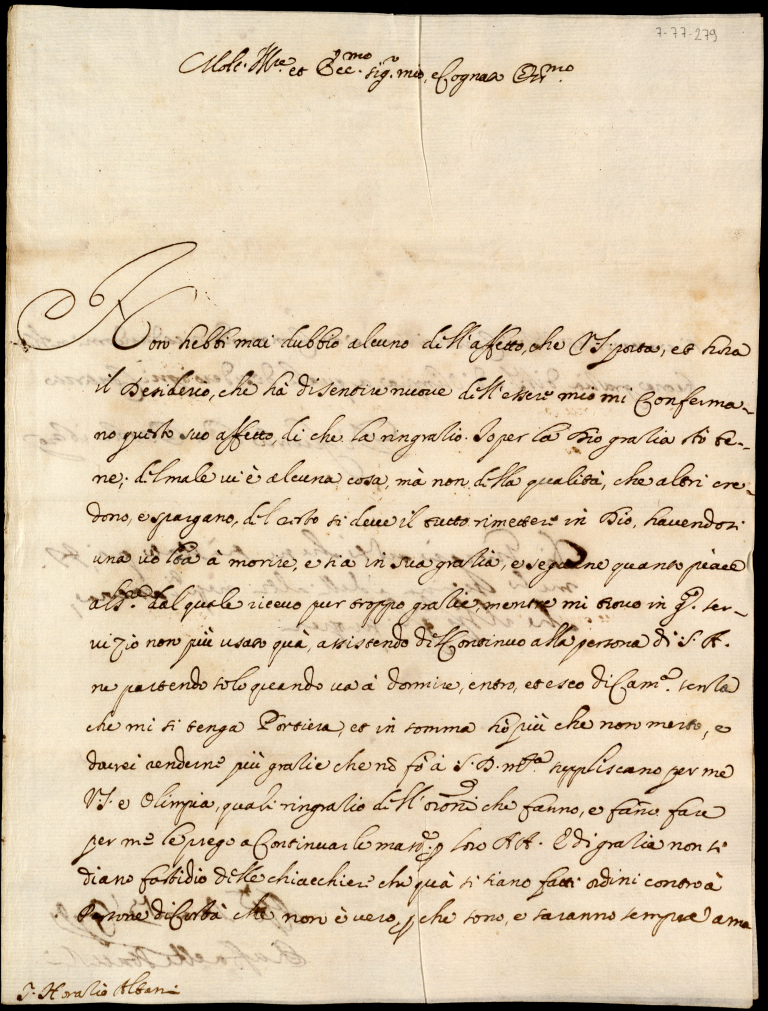 7-77-279
Molt. Ill.re et Ecc.mo sig.r mio, e Cognato Oss.mo
Non hebbi mai dubbio alcuno dell'affetto, che VS. porta, et hora
il Desiderio, che hà di sentire nuove dell'essere mio mi Conferma-
no questo suo affetto, di che la ringratio. Io per la Dio gratia stò be-
ne; del male vi è alcuna cosa, mà non della qualità, che altri cre-
dono, e spargano, del resto si deve il tutto rimettere in Dio, havendosi
una volta à morire, e sia in sua gratia, e seguane quanto piace
dal quale ricevo pur troppo gratie, mentre mi trovo in q.to ser-
vizio non più usato quà, assistendo di Continuo alla persona di S. A.
ne partendo solo quando và à dormire, entro, et esco di Cam.a senza
che mi si tenga Portiera, et in somma hò più che non merto, e
dovrei renderne più gratie che nō fò à S. D. M.tà suppliscano per me
VS. e Olimpia, quali ringratio dell'orōni che fanno, e fanno fare
per me le prego a Continuarle mass.e p loro AA. E di gratia non si
diano fastidio delle chiacchiere che quà si siano fatti ordini contro à
Persone di Corte che non è vero, p che sono, e saranno sempre ama
S. Horatio Albani